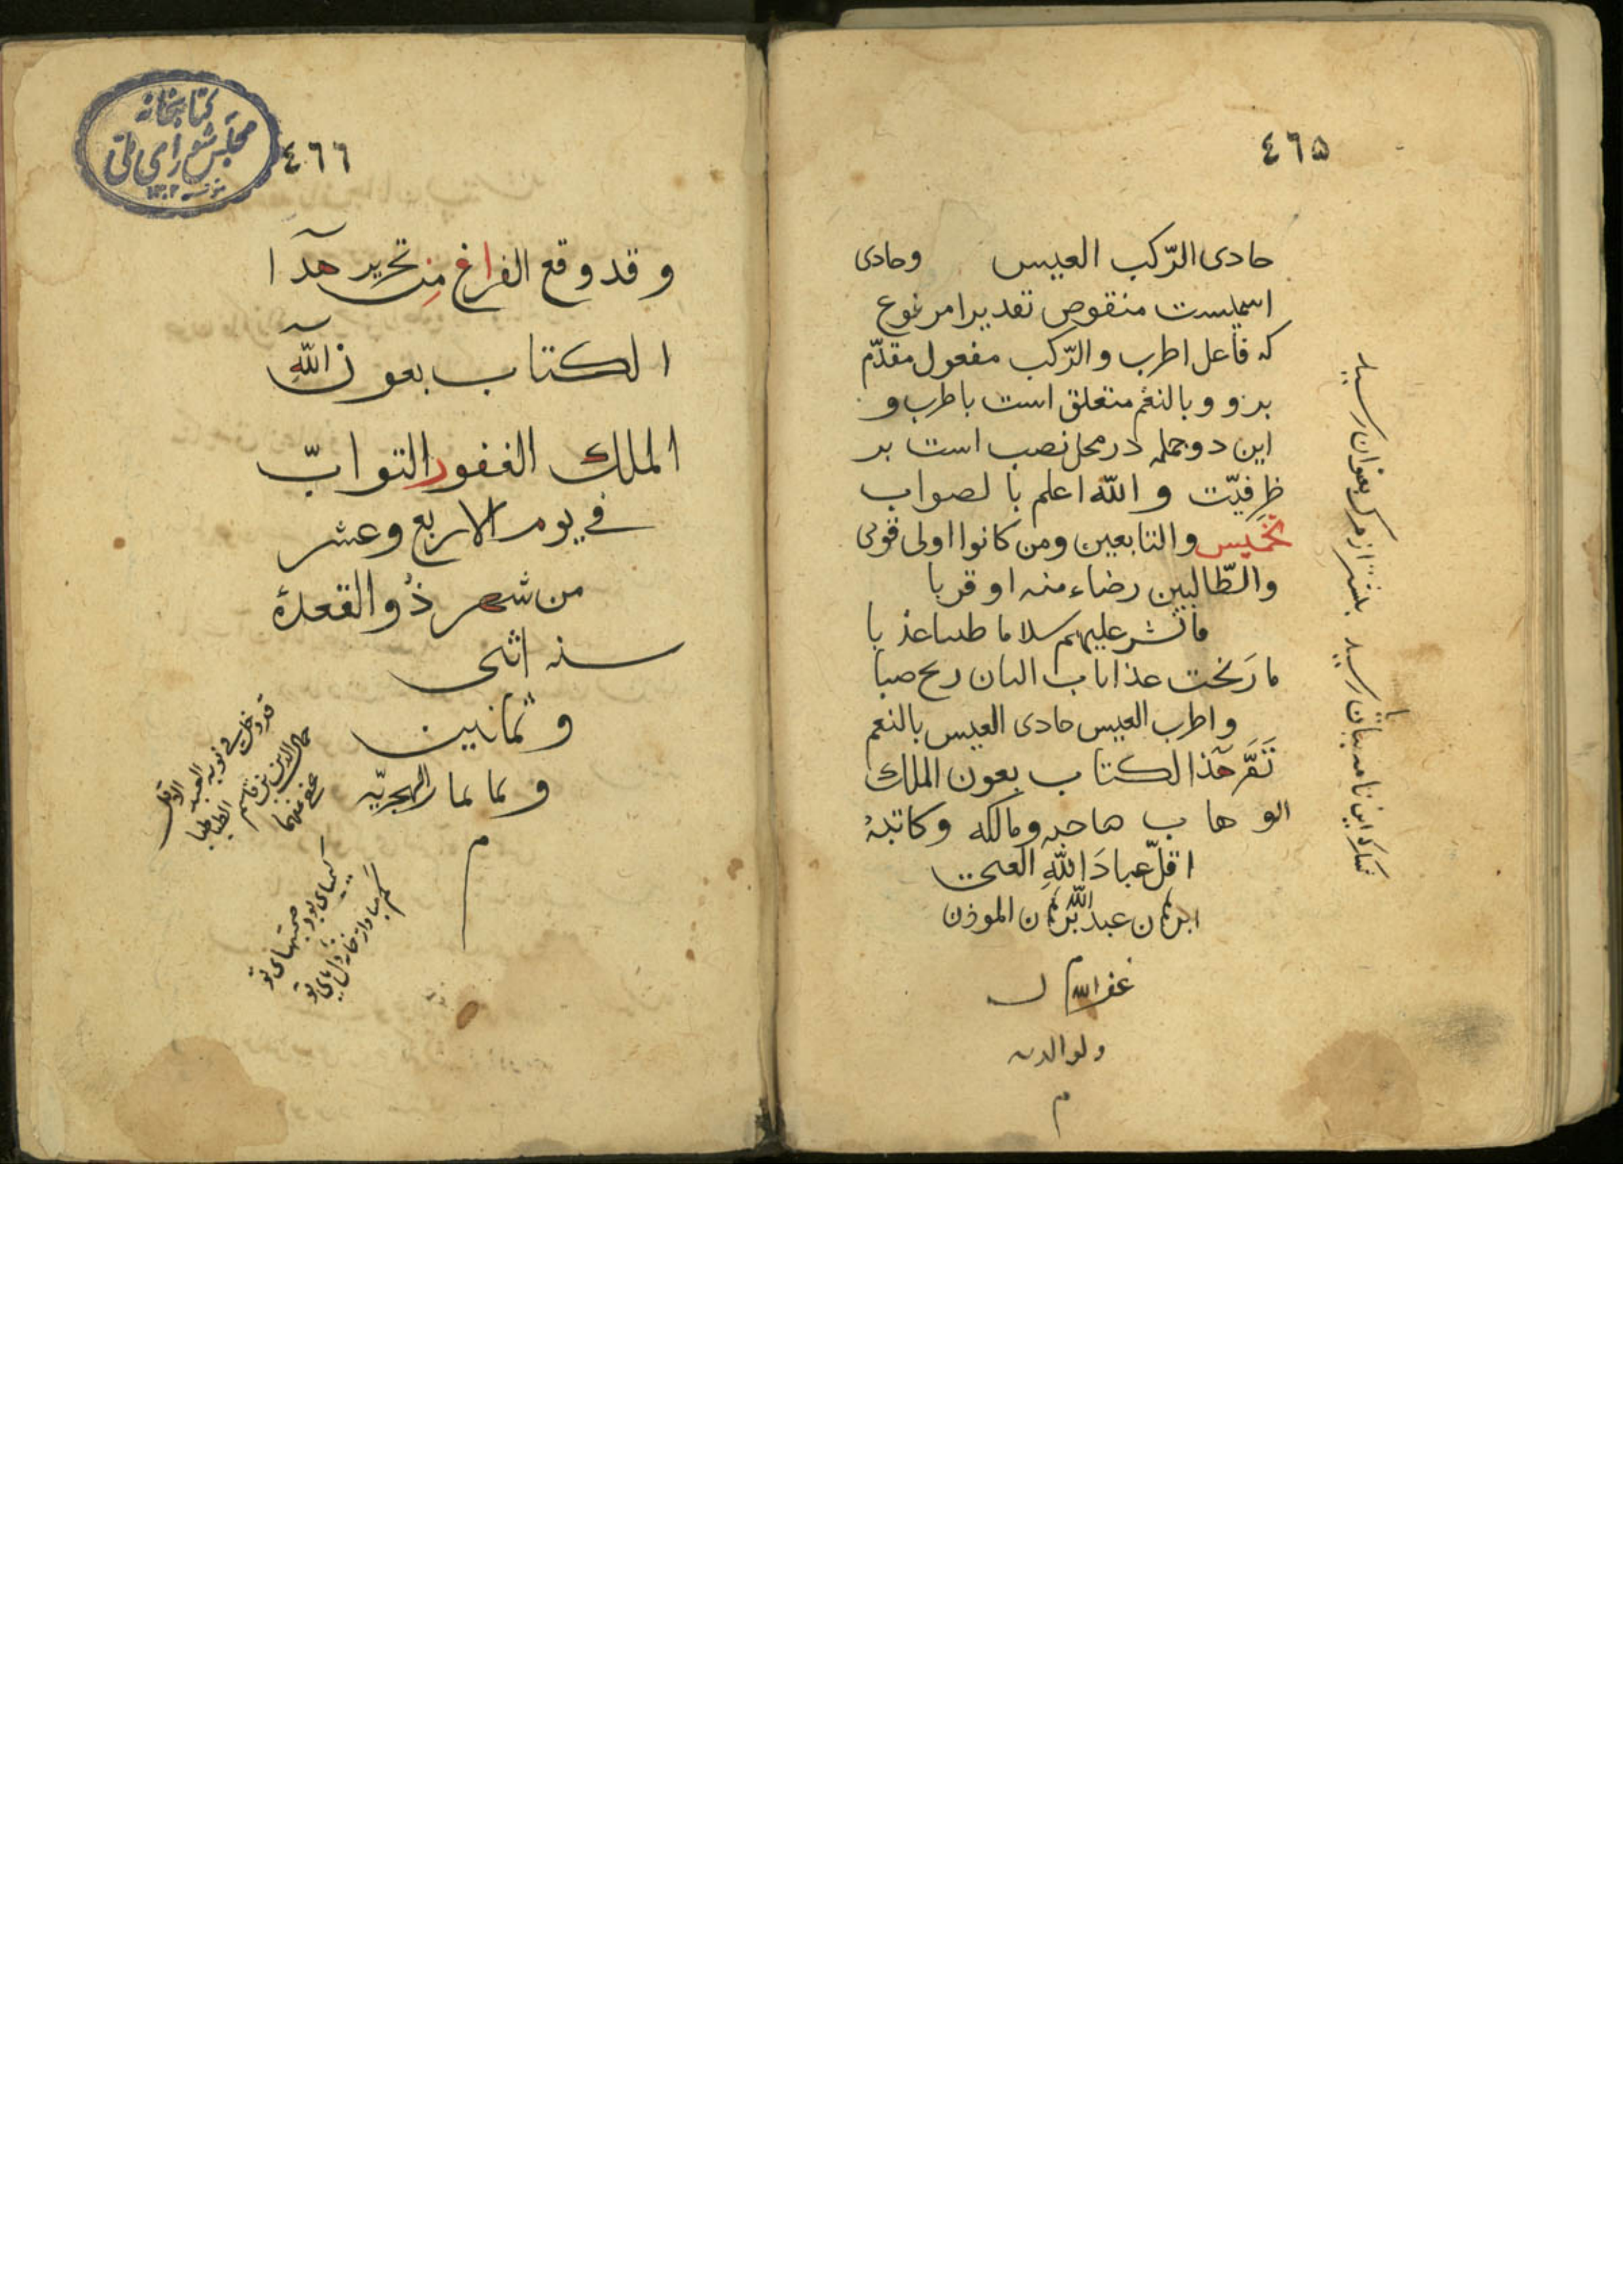 ٤٦۵
حادی الرّکب العیس وحادی
اسمیست منقوص تقدیرا مرفوع
که فاعل اطرب والرّکب مفعول مقدّم
برو و بالنغم متعلق است باطرب و
این دو جمله در محل نصب است بر
ظرفیّت و الله اعلم بالصواب
تخمیس والتابعین ومن کانوا اولی قربی
والطّالبین رضاء منه او قربا
فانشر علیهم سلاما طیبا عذبا
ما رنحت عذبات البان ریح صبا
و اطرب العیس حادی العیس بالنغم
تَمَّ هٓذا الکتاب بعون الملک
الوهاب صاحبه ومالکه وکاتبهُ
اقلّ عبادَ اللهِ
عبدالله المؤذن
غفر الله له
ولوالدیه
م
رسید
٤٦٦
کتابخانه
مجلس شورای ملّی
١٣٠٢
وقد وقع الفراغ من تحریر هٓذا
الکتاب بعون اللّهِ
الملک الغفور التوابّ
فی یوم الاربع وعشر
من شهر ذُوالقعدة
سنه اثنی
وثمانین
وثمانمائه الهجریّه
م
قد دخل فی نوبة العبد الاقل
جمال الدین بن قاسم الطباطبا
عفی عنهما